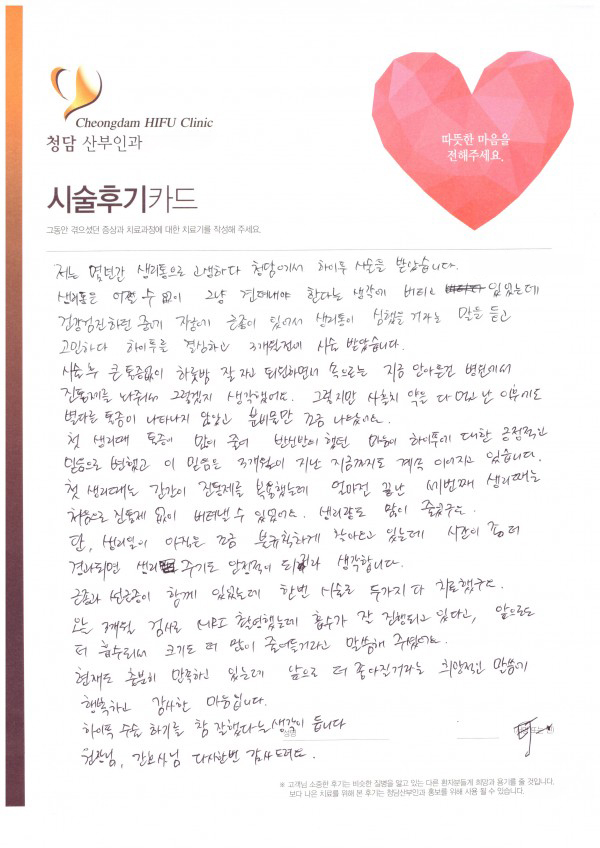 Cheongdam HIFU Clinic
청담 산부인과
따뜻한 마음을
전해주세요.
시술후기카드
그동안 겪으셨던 증상과 치료과정에 대한 치료기를 작성해 주세요.
저는 몇년간 생리통으로 고생하다 청담에서 하이푸 시술을 받았습니다.
생리통은 어쩔 수 없이 그냥 견뎌내야 한다는 생각에 버티고 있었는데
건강검진하던 중에 자궁에 근종이 있어서 생리통이 심했을 거라는 말을 듣고
고민하다 하이푸를 결심하고 3개월전에 시술 받았습니다.
시술 후 큰 통증없이 하룻밤 잘 자고 퇴원하면서 속으로는 지금 안아픈건 병원에서
진통제를 놔줘서 그렇겠지 생각했어요. 그렇지만 사흘치 약을 다 먹고 난 이후에도
별다른 통증이 나타나지 않았고 분비물만 조금 나왔어요.
첫 생리때 통증이 많이 줄어 반신반의 했던 마음이 하이푸에 대한 긍정적인
믿음으로 변했고 이 믿음은 3개월이 지난 지금까지도 계속 이어지고 있습니다.
첫 생리때는 간간이 진통제를 복용했는데 얼마전 끝난 세번째 생리때는
처음으로 진통제 없이 버텨낼 수 있었어요. 생리량도 많이 줄었구요.
단, 생리일이 아직은 조금 불규칙하게 찾아오고 있는데 시간이 좀 더
경과되면 생리 주기도 안정적이 되리라 생각합니다.
근종과 선근증이 함께 있었는데 한번 시술로 두가지 다 치료했구요.
오늘 3개월 검사로 MRI 촬영했는데 흡수가 잘 진행되고 있다고, 앞으로도
더 흡수되서 크기도 더 많이 줄어들거라고 말씀해 주셨어요.
현재도 충분히 만족하고 있는데 앞으로 더 좋아질거라는 희망적인 말씀에
행복하고 감사한 마음입니다.
하이푸 수술 하기를 참 잘했다는 생각이 듭니다
원장님, 간호사님 다시한번 감사드려요.
※ 고객님 소중한 후기는 비슷한 질병을 앓고 있는 다른 환자분들께 희망과 용기를 줄 것입니다.
보다 나은 치료를 위해 본 후기는 청담산부인과 홍보를 위해 사용 될 수 있습니다.